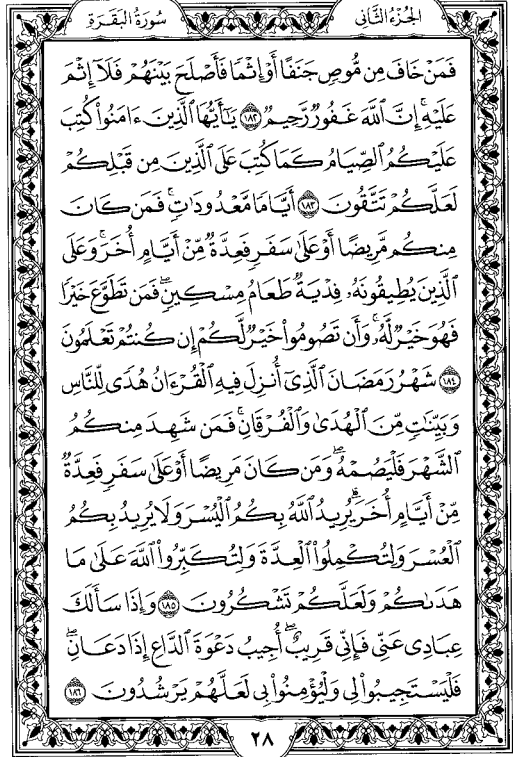 سُورَةُ البَقَرَةِ
الجُزْءُ الثَّانِي
فَمَنْ خَافَ مِن مُّوصٍ جَنَفًا أَوْ إِثْمًا فَأَصْلَحَ بَيْنَهُمْ فَلَآ إِثْمَ
عَلَيْهِ ۚ إِنَّ ٱللَّهَ غَفُورٌ رَّحِيمٌ ١٨٢ يَـٰٓأَيُّهَا ٱلَّذِينَ ءَامَنُوا۟ كُتِبَ
عَلَيْكُمُ ٱلصِّيَامُ كَمَا كُتِبَ عَلَى ٱلَّذِينَ مِن قَبْلِكُمْ
لَعَلَّكُمْ تَتَّقُونَ ١٨٣ أَيَّامًا مَّعْدُودَٰتٍ ۚ فَمَن كَانَ
مِنكُم مَّرِيضًا أَوْ عَلَىٰ سَفَرٍ فَعِدَّةٌ مِّنْ أَيَّامٍ أُخَرَ ۚ وَعَلَى
ٱلَّذِينَ يُطِيقُونَهُۥ فِدْيَةٌ طَعَامُ مِسْكِينٍ ۖ فَمَن تَطَوَّعَ خَيْرًا
فَهُوَ خَيْرٌ لَّهُۥ ۚ وَأَن تَصُومُوا۟ خَيْرٌ لَّكُمْ إِن كُنتُمْ تَعْلَمُونَ
١٨٤ شَهْرُ رَمَضَانَ ٱلَّذِىٓ أُنزِلَ فِيهِ ٱلْقُرْءَانُ هُدًى لِّلنَّاسِ
وَبَيِّنَـٰتٍ مِّنَ ٱلْهُدَىٰ وَٱلْفُرْقَانِ ۚ فَمَن شَهِدَ مِنكُمُ
ٱلشَّهْرَ فَلْيَصُمْهُ ۖ وَمَن كَانَ مَرِيضًا أَوْ عَلَىٰ سَفَرٍ فَعِدَّةٌ
مِّنْ أَيَّامٍ أُخَرَ ۗ يُرِيدُ ٱللَّهُ بِكُمُ ٱلْيُسْرَ وَلَا يُرِيدُ بِكُمُ
ٱلْعُسْرَ وَلِتُكْمِلُوا۟ ٱلْعِدَّةَ وَلِتُكَبِّرُوا۟ ٱللَّهَ عَلَىٰ مَا
هَدَىٰكُمْ وَلَعَلَّكُمْ تَشْكُرُونَ ١٨٥ وَإِذَا سَأَلَكَ
عِبَادِى عَنِّى فَإِنِّى قَرِيبٌ ۖ أُجِيبُ دَعْوَةَ ٱلدَّاعِ إِذَا دَعَانِ ۖ
فَلْيَسْتَجِيبُوا۟ لِى وَلْيُؤْمِنُوا۟ بِى لَعَلَّهُمْ يَرْشُدُونَ ١٨٦
٢٨